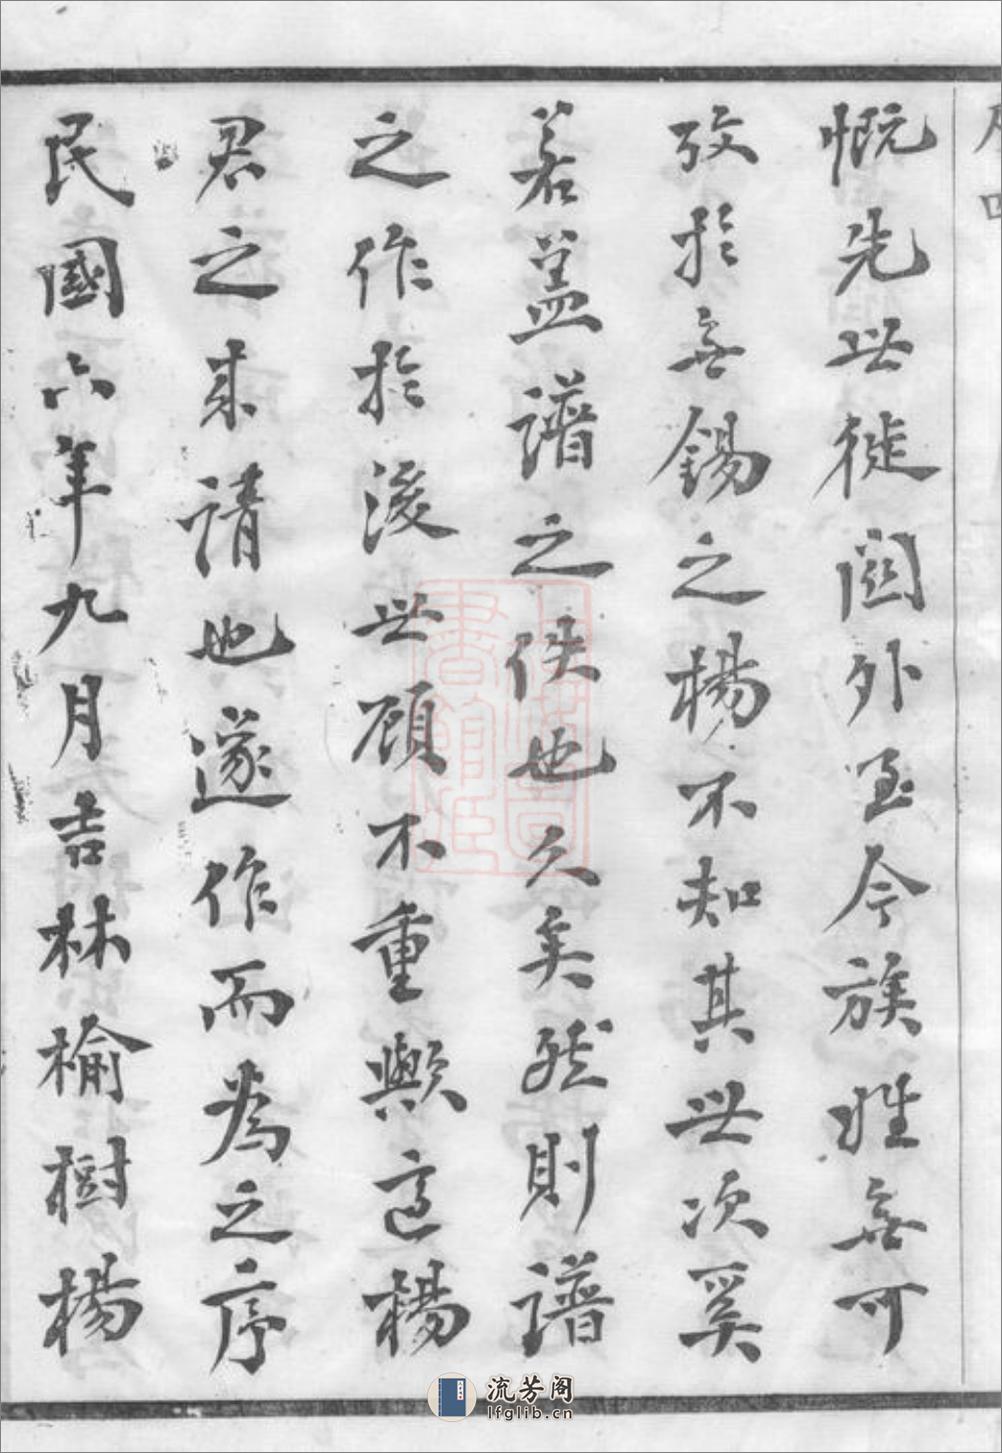 慨先世徙關外至今族姓無可
攷於無錫之楊不知其世次奚
若蓋譜之佚也久矣然則譜
之作於後世顧不重歟適楊
君之來請也遂作而為之序
民國六年九月吉林榆樹楊
流芳阁
lfglib.cn